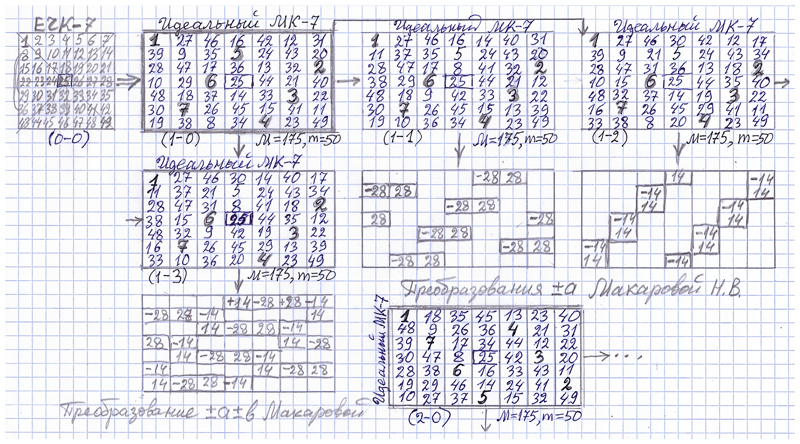 ЕЧК-7
1 2 3 4 5 6 7
8 9 10 11 12 13 14
15 16 17 18 19 20 21
22 23 24 25 26 27 28
29 30 31 32 33 34 35
36 37 38 39 40 41 42
43 44 45 46 47 48 49
(0-0)
Идеальный МК-7
1 27 46 16 42 12 31
39 9 35 5 24 43 20
28 47 17 36 13 32 2
10 29 6 25 44 21 40
48 18 37 14 33 3 22
30 7 26 45 15 41 11
19 38 8 34 4 23 49
(1-0) M=175, m=50
Идеальный МК-7
1 27 46 16 14 40 31
11 37 35 5 24 43 20
28 47 17 8 41 32 2
38 29 6 25 44 21 12
48 18 9 42 33 3 22
30 7 26 45 15 13 39
19 10 36 34 4 23 49
(1-1) M=175, m=50
Идеальный МК-7
1 27 46 30 42 12 17
39 9 21 5 24 43 34
28 47 31 36 13 18 2
10 15 6 25 44 35 40
48 32 37 14 19 3 22
16 7 26 45 29 41 11
33 38 8 20 4 23 49
(1-2) M=175, m=50
Идеальный МК-7
1 27 46 30 14 40 17
11 37 21 5 24 43 34
28 47 31 8 41 18 2
38 15 6 25 44 35 12
48 32 9 42 19 3 22
16 7 26 45 29 13 39
33 10 36 20 4 23 49
(1-3) M=175, m=50
-28 28
-28 28
-28 28
28 -28
-28 28
-28 28
-28 28
14 -14
-14 14
-14 14
-14 14
-14 14
-14 14
14 -14
Преобразования ±a Макаровой Н.В.
+14 -28 +28 -14
-28 28 -14 14
14 -28 28 -14
28 -14 14 -28
14 -28 28 -14
-14 14 -28 28
14 -28 28 -14
Преобразование ±a±в Макаровой
Идеальный МК-7
1 18 35 45 13 23 40
48 9 26 36 4 21 31
39 7 17 34 44 12 22
30 47 8 25 42 3 20
28 38 6 16 33 43 11
19 29 46 14 24 41 2
10 27 37 5 15 32 49
(2-0) M=175, m=50